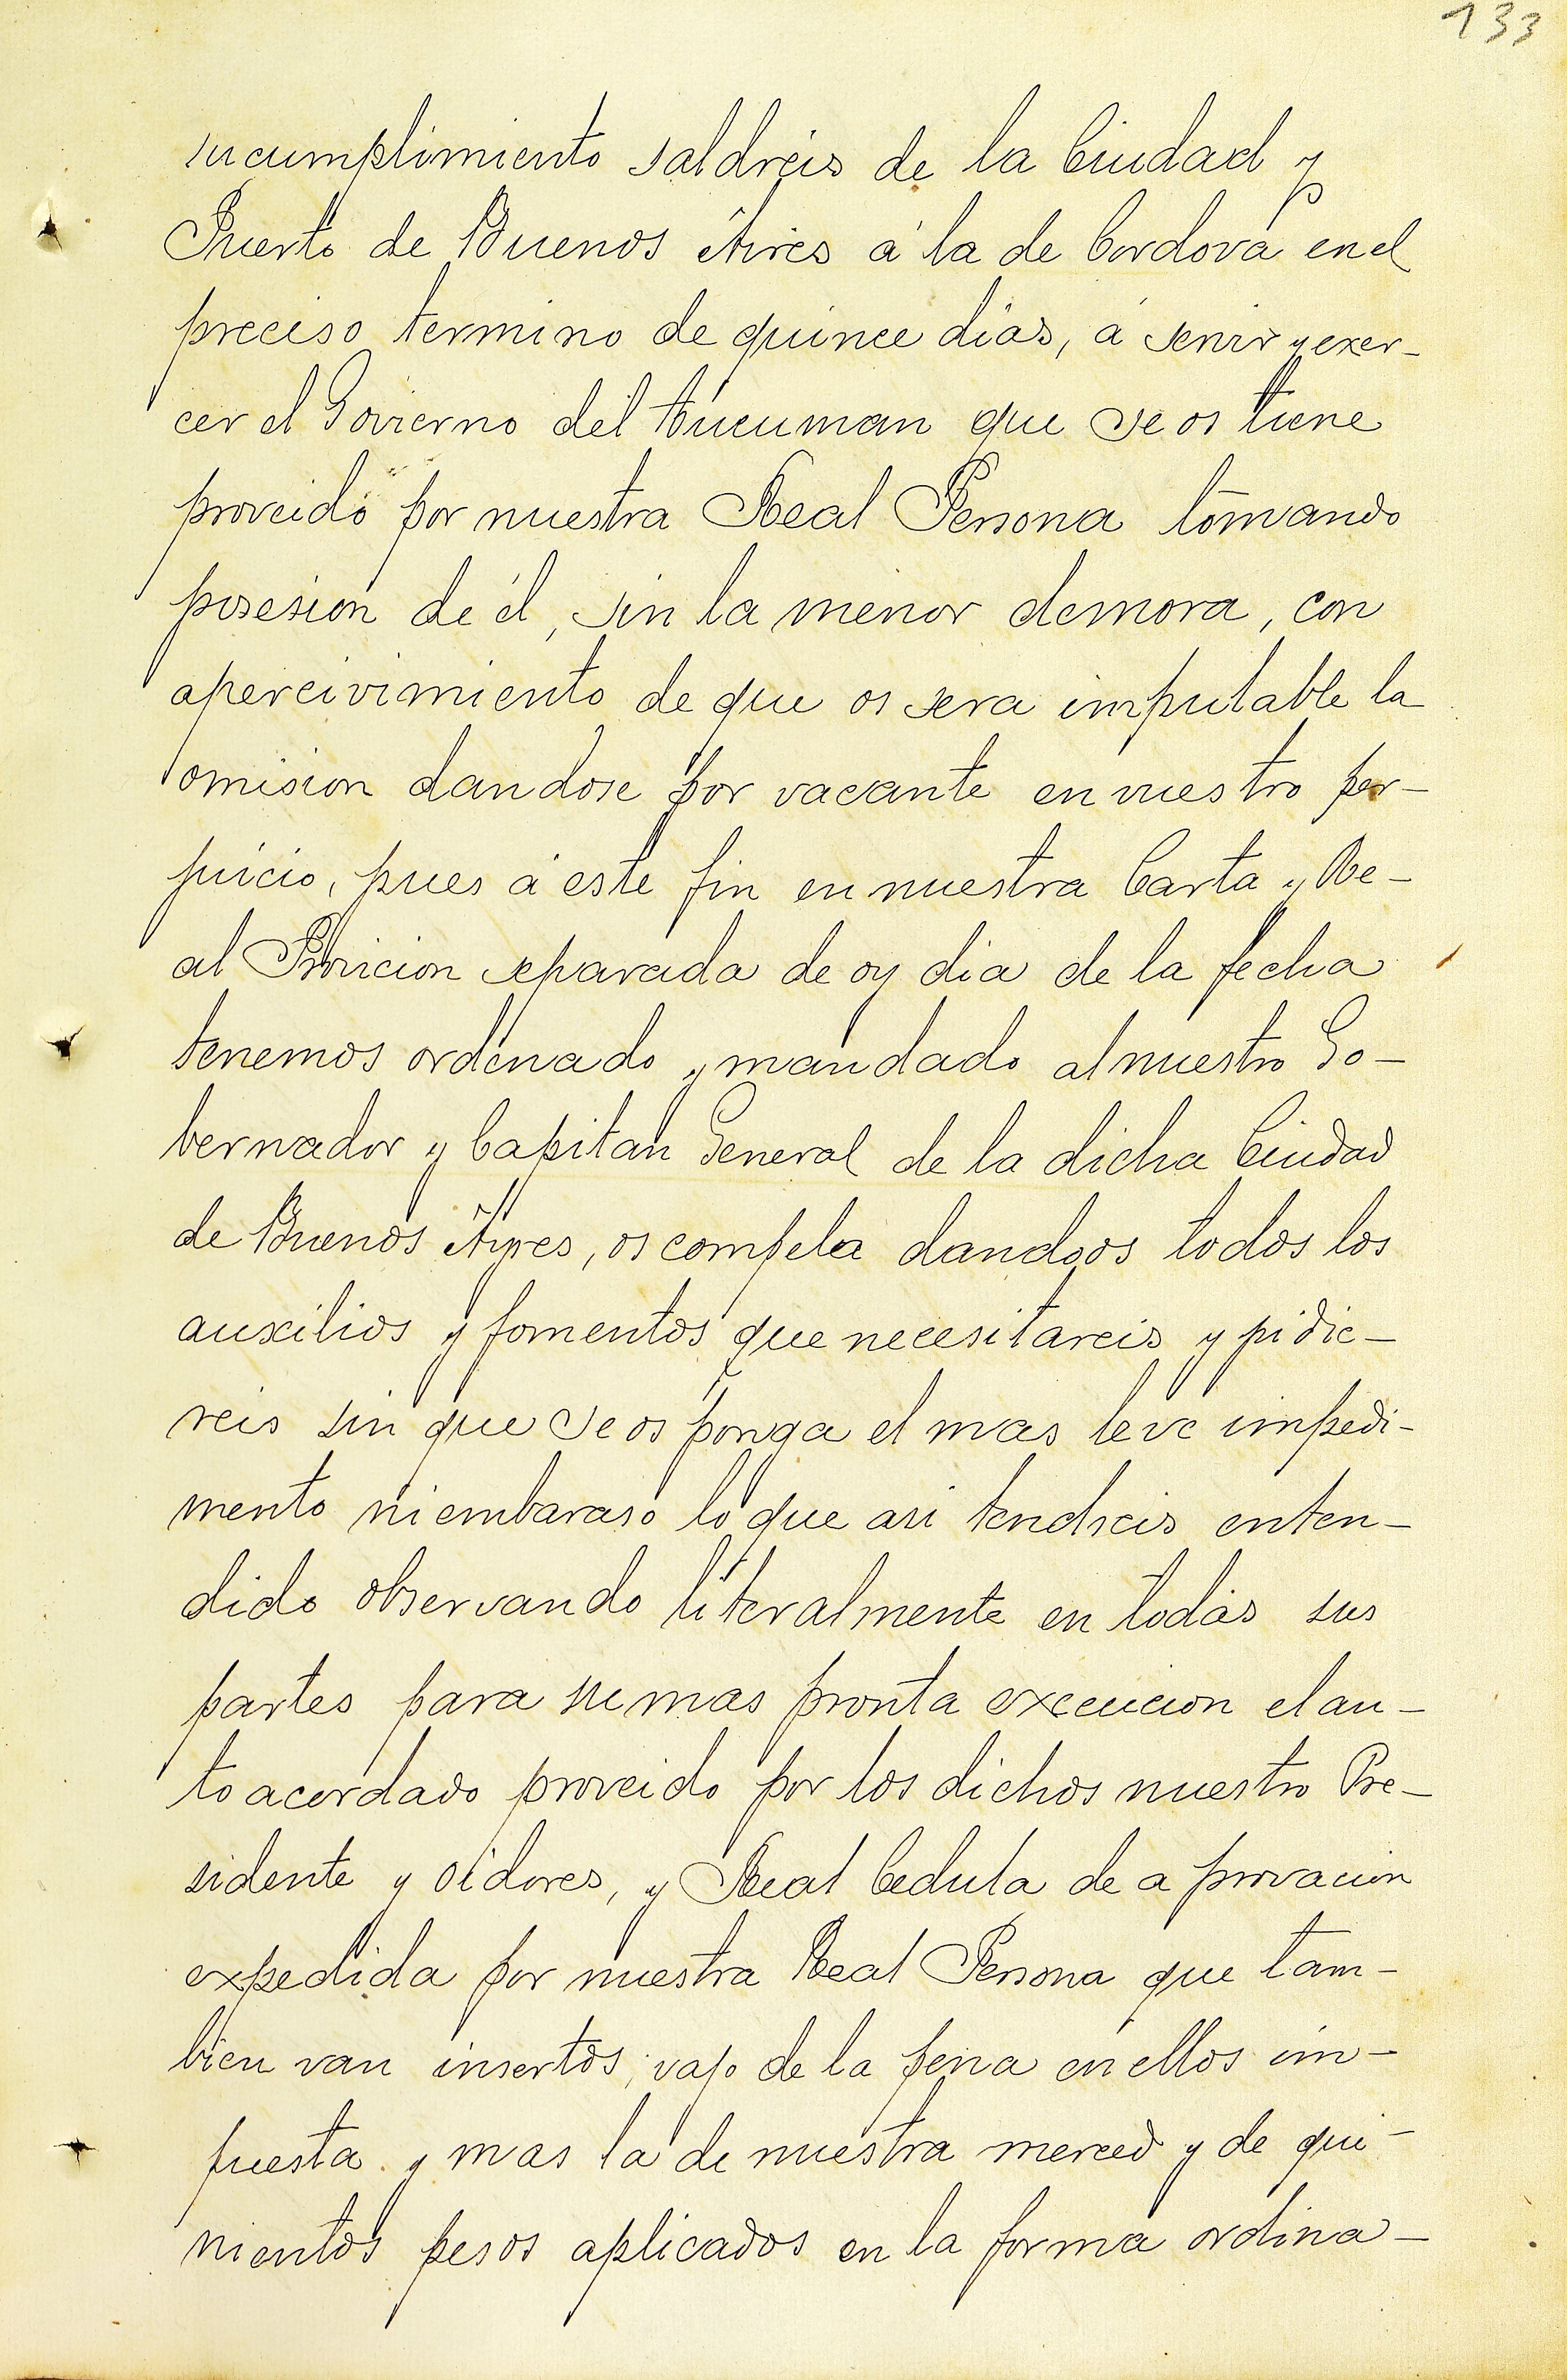 133
sucumplimiento saldreis de la Ciudad y
Puerto de Buenos Aires á la de Cordova enel
preciso termino de quince dias, á servir y exer-
cer el Govierno del tucuman que se os tiene
proveido por nuestra Real Persona tomando
posesion de él, sin la menor demora, con
apercivimiento de que os sera imputable la
omision dandose por vacante en vuestro per-
juicio, pues á este fin en nuestra Carta y Re-
al Provicion separada de oy dia de la fecha
tenemos ordenado y mandado al nuestro Go-
bernador y Capitan General de la dicha Ciudad
de Buenos Ayres, os compela dandoos todos los
auxilios y fomentos que necesitareis y pidie-
reis sin que se os ponga el mas leve impedi-
mento ni embaraso lo que asi tendreis enten-
dido observando literalmente en todas sus
partes para su mas pronta execucion el au-
to acordado proveido por los dichos nuestro Pre-
sidente y oidores, y Real Cedula de aprovacion
expedida por nuestra Real Persona que tam-
bien van insertos, vajo de la pena en ellos im-
puesta y mas la de nuestra merced y de qui-
nientos pesos aplicados en la forma ordina-